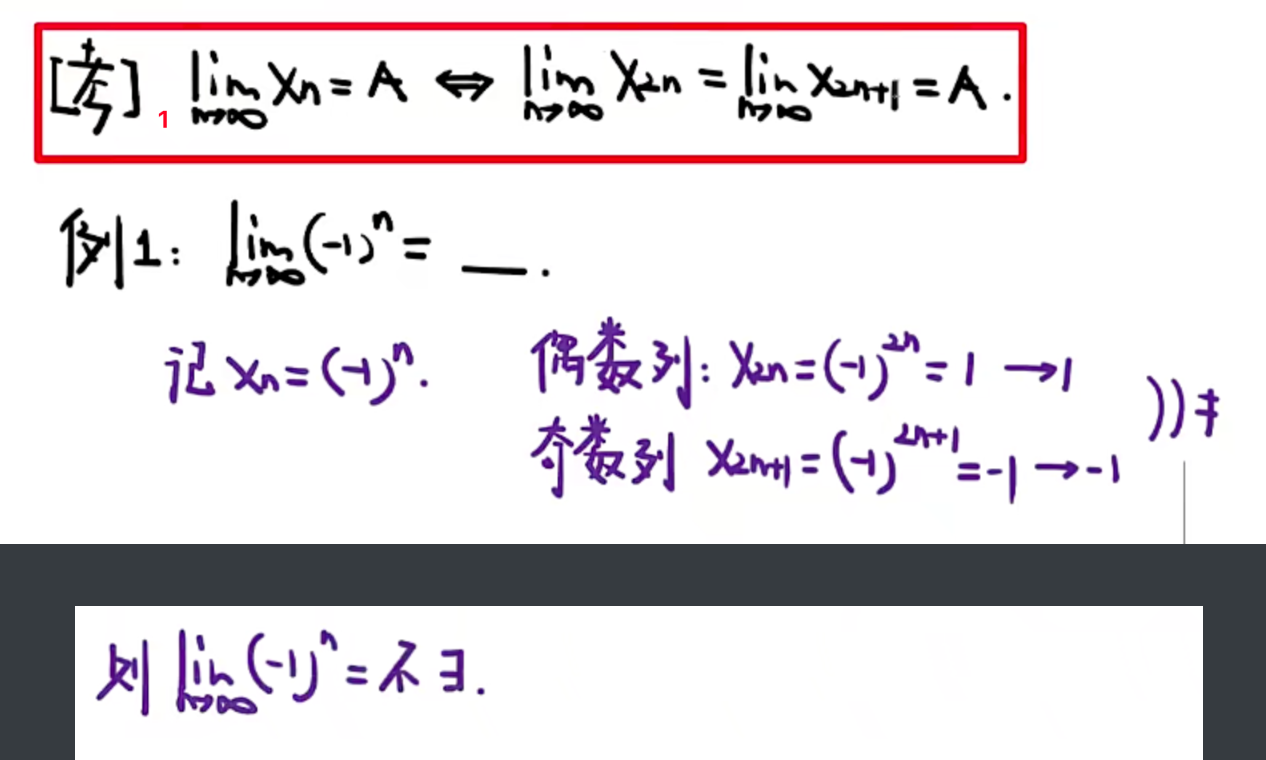 [考]1 lim_{n→∞} Xn = A ⇔ lim_{n→∞} X2n = lim_{n→∞} X2n+1 = A .
例1: lim_{n→∞} (-1)^n = __ .
记 Xn = (-1)^n . 偶数列: X2n = (-1)^{2n} = 1 → 1
奇数列 X2n+1 = (-1)^{2n+1} = -1 → -1 )) ≠
则 lim_{n→∞} (-1)^n = 不∃.